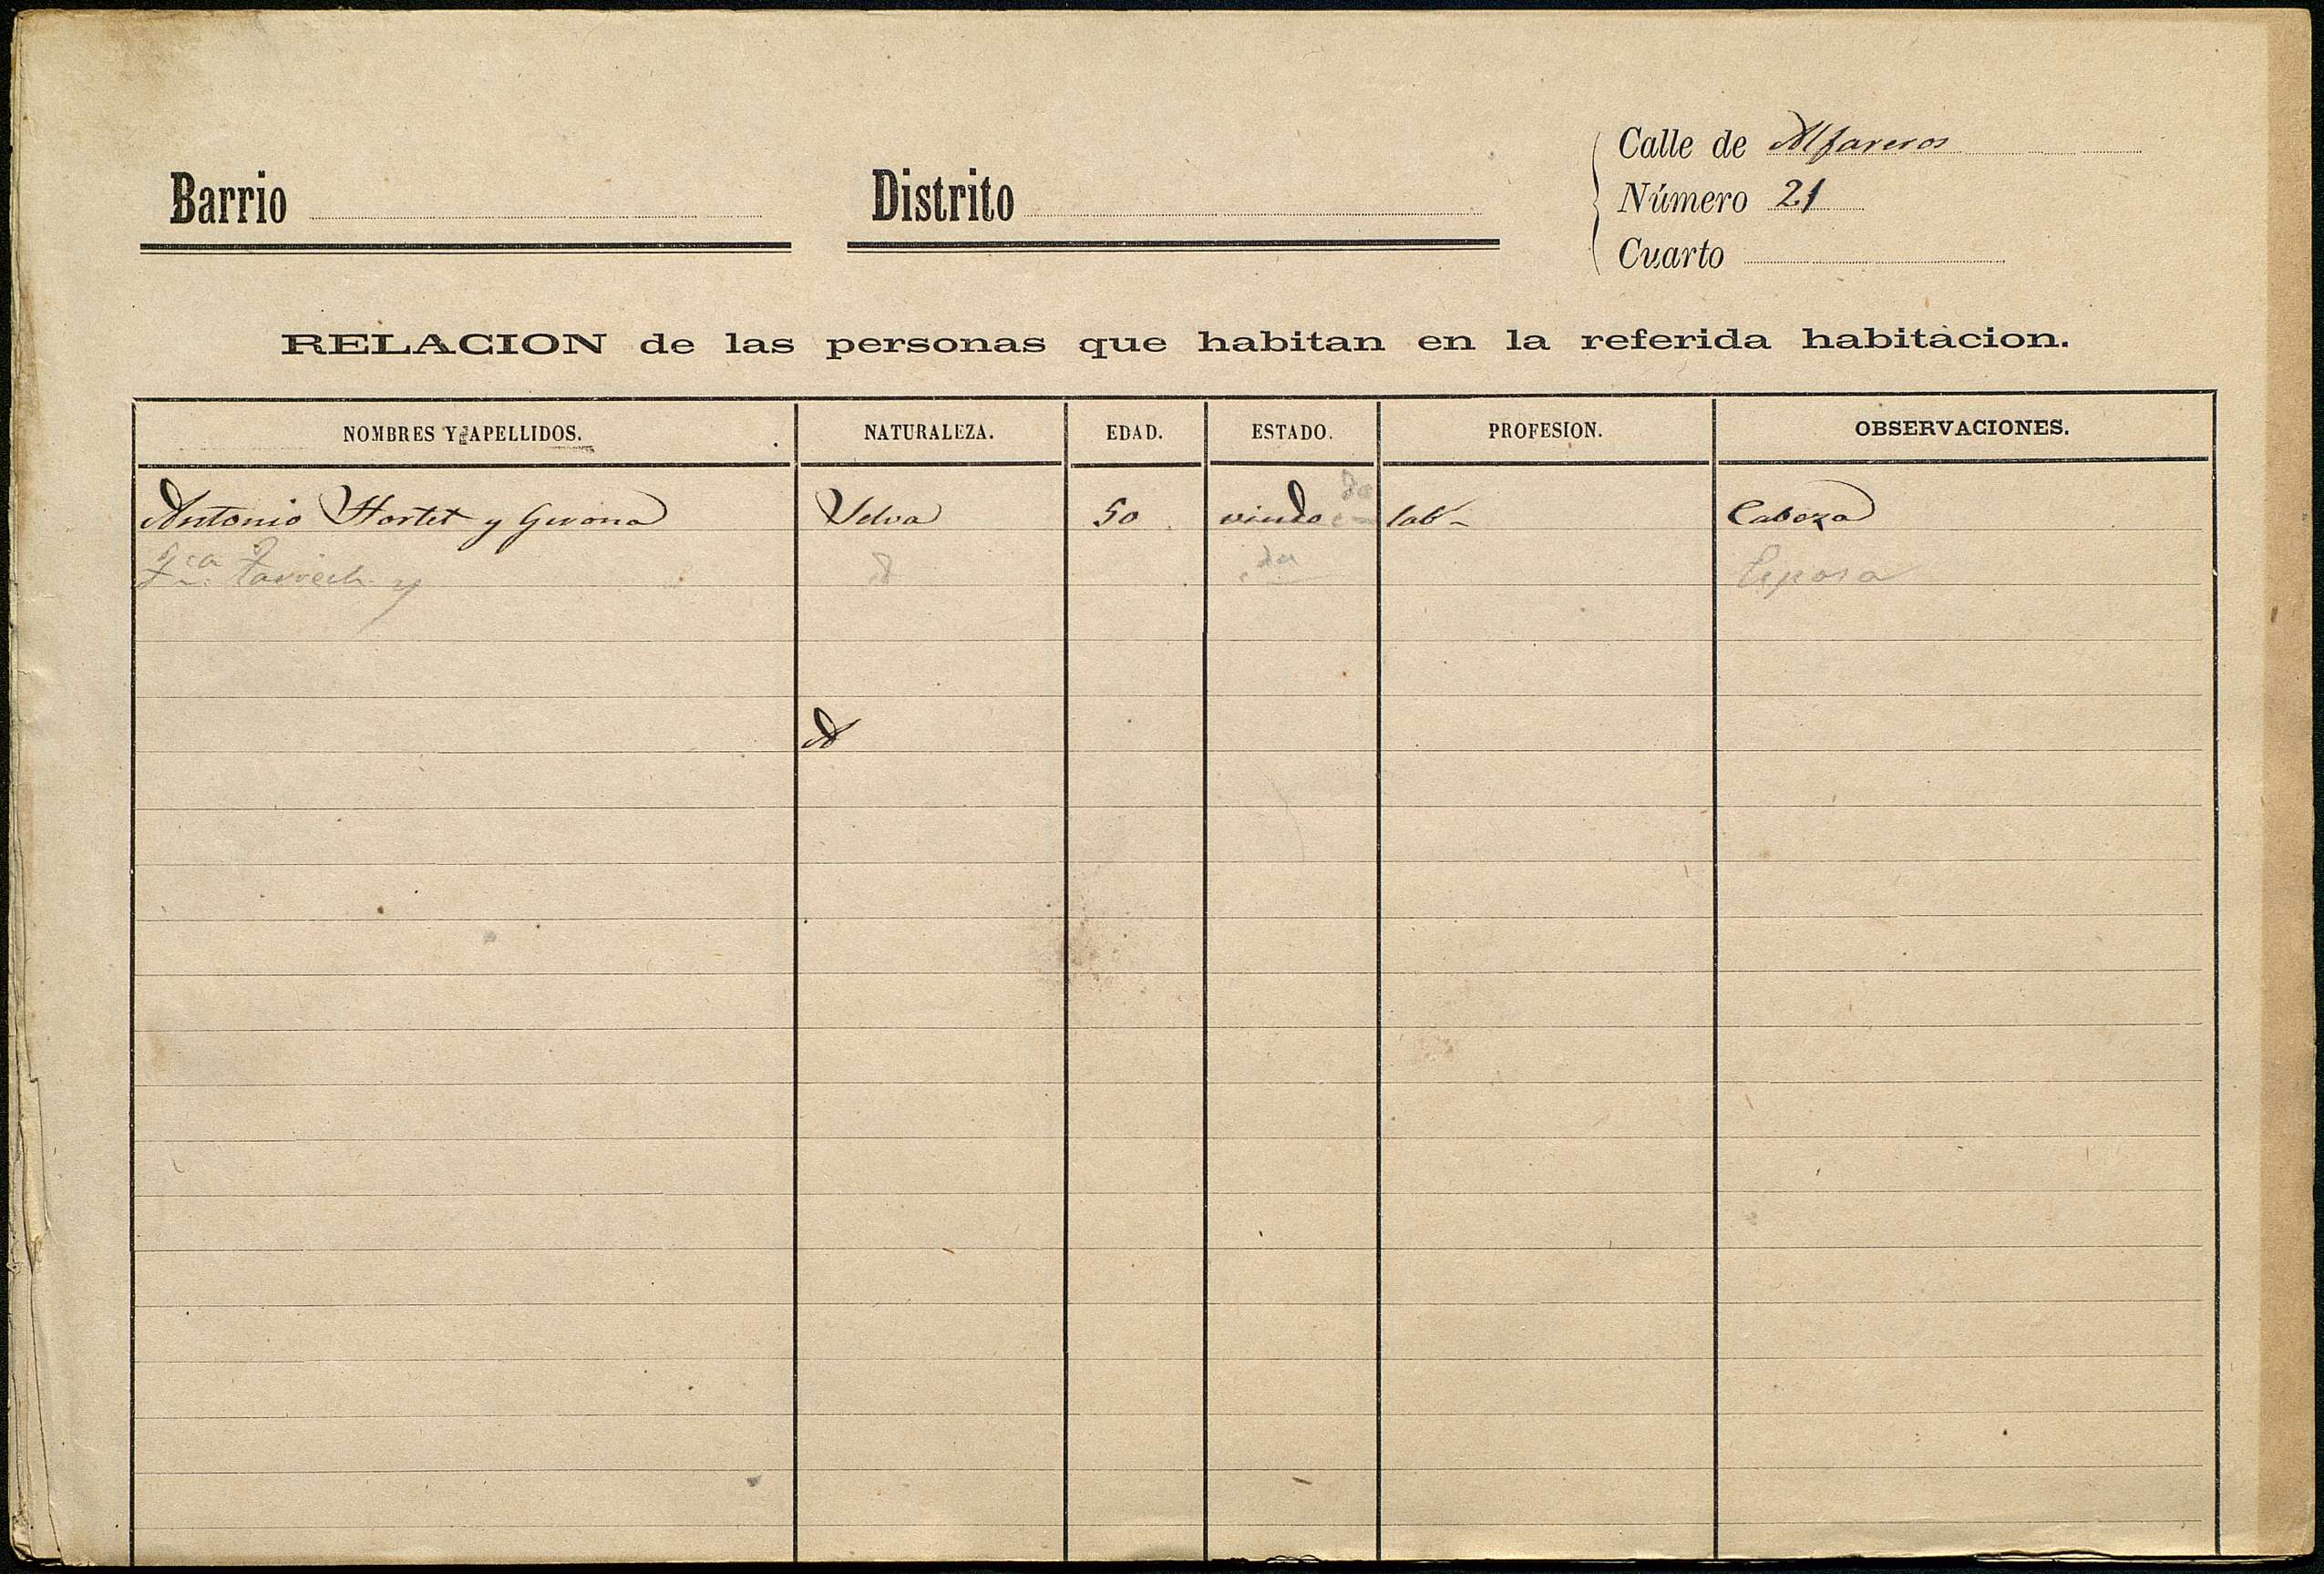 Calle de Alfareros
Barrio
Distrito
Número 21
Cuarto
RELACION de las personas que habitan en la referida habitacion.
NOMBRES Y APELLIDOS. NATURALEZA. EDAD. ESTADO. PROFESION. OBSERVACIONES.
da
Antonio Hortet y Gerona Velva 50 viudo lab- Cabeza
Fca y da Esposa